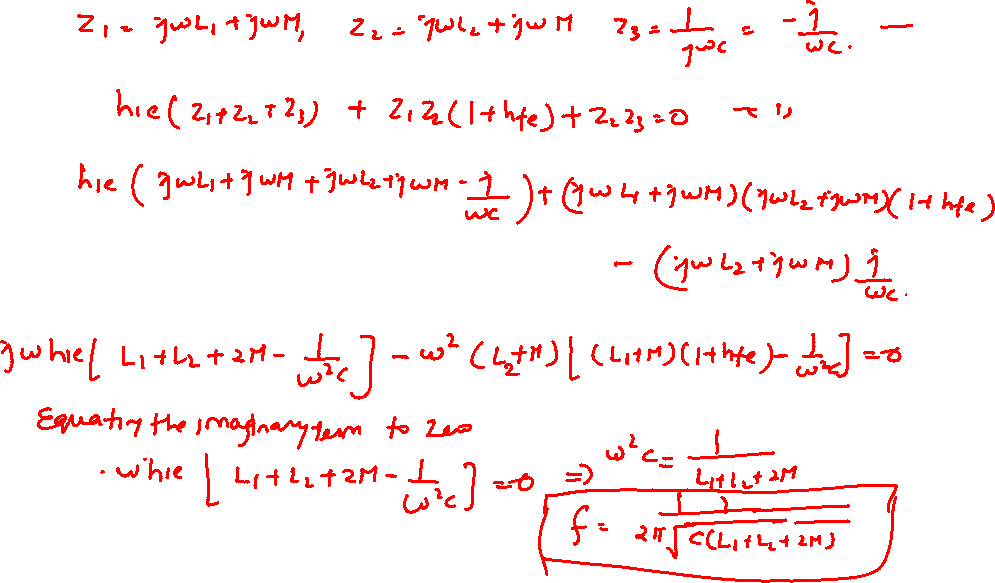 Z₁ = jωL₁ + jωM, Z₂ = jωL₂ + jωM Z₃ = 1/jωc = -j/ωc. —
hie(Z₁+Z₂+Z₃) + Z₁Z₂(1+hfe) + Z₂Z₃ = 0 → 1)
hie (jωL₁ + jωM + jωL₂ + jωM - j/ωc) + (jωL₁ + jωM)(jωL₂ + jωM)(1+hfe)
- (jωL₂ + jωM) j/ωc.
jωhie[L₁ + L₂ + 2M - 1/ω²c] - ω² (L₂+M) [(L₁+M)(1+hfe) - 1/ω²c] = 0
Equating the imaginary term to zero
. ωhie [L₁ + L₂ + 2M - 1/ω²c] = 0 ⇒ ω²c = 1/L₁+L₂+2M
f = 1/2π√C(L₁+L₂+2M)